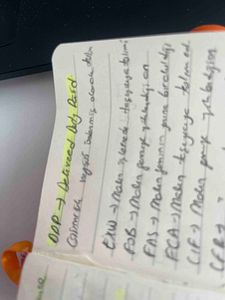 DDP → Delivered Duty Paid
Gümrük vergisi ödenmiş olarak teslim
EXW → Malın işletmede taşıyıcıya teslimi
FOB → Malın gemiye yüklendiği an
FAS → Malın geminin yanına bırakıldığı
FCA → Malın taşıyıcıya teslimed
CIF → Malın gemiye yüklendiğinin